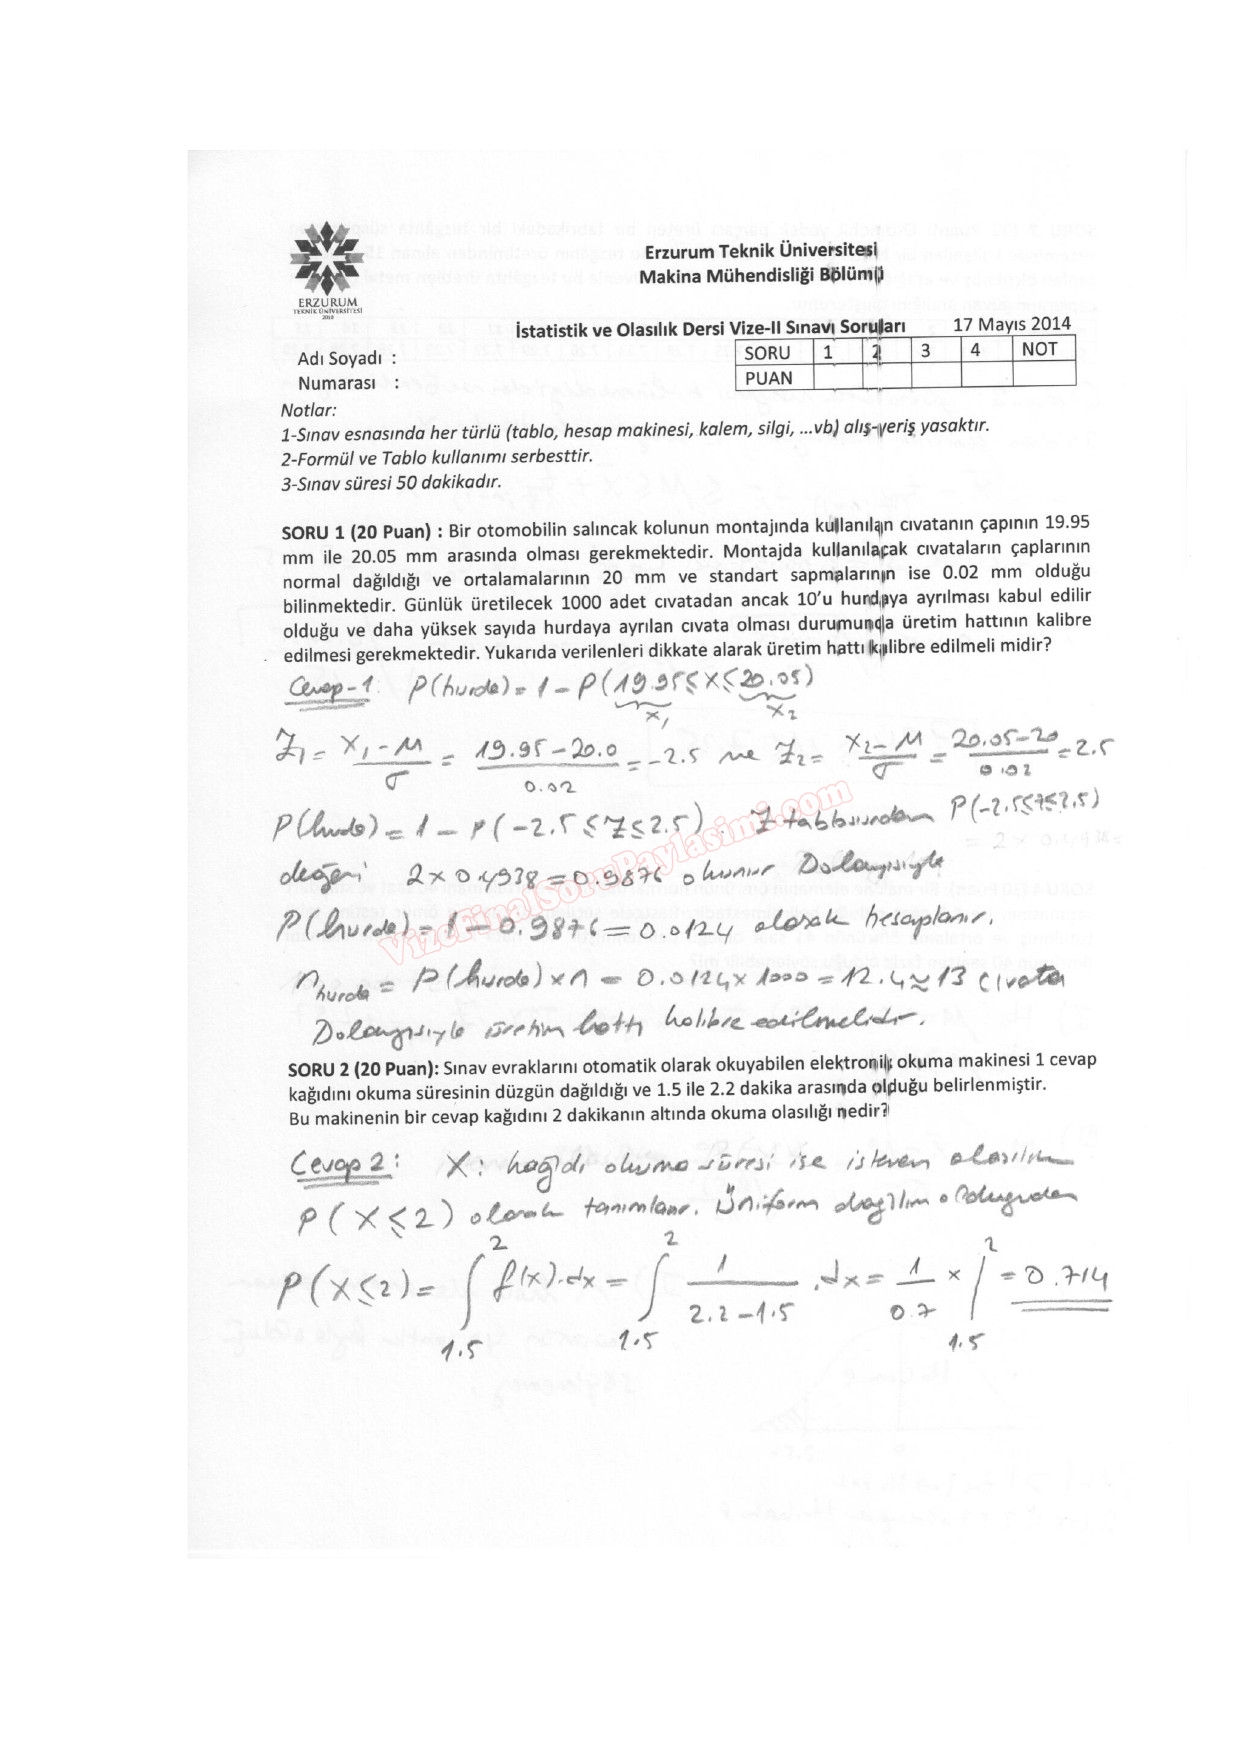 ERZURUM
TEKNİK ÜNİVERSİTESİ
2010
Erzurum Teknik Üniversitesi
Makina Mühendisliği Bölümü
İstatistik ve Olasılık Dersi Vize-II Sınavı Soruları 17 Mayıs 2014
Adı Soyadı :
Numarası :
SORU 1 2 3 4 NOT
PUAN
Notlar:
1-Sınav esnasında her türlü (tablo, hesap makinesi, kalem, silgi, ...vb) alış-veriş yasaktır.
2-Formül ve Tablo kullanımı serbesttir.
3-Sınav süresi 50 dakikadır.
SORU 1 (20 Puan) : Bir otomobilin salıncak kolunun montajında kullanılan cıvatanın çapının 19.95
mm ile 20.05 mm arasında olması gerekmektedir. Montajda kullanılacak cıvataların çaplarının
normal dağıldığı ve ortalamalarının 20 mm ve standart sapmalarının ise 0.02 mm olduğu
bilinmektedir. Günlük üretilecek 1000 adet cıvatadan ancak 10'u hurdaya ayrılması kabul edilir
olduğu ve daha yüksek sayıda hurdaya ayrılan cıvata olması durumunda üretim hattının kalibre
edilmesi gerekmektedir. Yukarıda verilenleri dikkate alarak üretim hattı kalibre edilmeli midir?
Cevap-1: P(hurda) = 1 - P(19.95 ≤ X ≤ 20.05)
x₁ x₂
Z₁ = x₁ - μ / σ = 19.95 - 20.0 / 0.02 = -2.5 ve Z₂ = x₂ - μ / σ = 20.05 - 20 / 0.02 = 2.5
P(hurda) = 1 - P(-2.5 ≤ Z ≤ 2.5). Z tablosundan P(-2.5 ≤ Z ≤ 2.5)
değeri 2 x 0.4938 = 0.9876 okunur Dolayısıyla
P(hurda) = 1 - 0.9876 = 0.0124 olarak hesaplanır.
n hurda = P(hurda) x n = 0.0124 x 1000 = 12.4 ≈ 13 cıvata
Dolayısıyla üretim hattı kalibre edilmelidir.
VizeFinalSoruPaylasimi.com
SORU 2 (20 Puan): Sınav evraklarını otomatik olarak okuyabilen elektronik okuma makinesi 1 cevap
kağıdını okuma süresinin düzgün dağıldığı ve 1.5 ile 2.2 dakika arasında olduğu belirlenmiştir.
Bu makinenin bir cevap kağıdını 2 dakikanın altında okuma olasılığı nedir?
Cevap 2: X: kağıdı okuma süresi ise istenen olasılık
P(X ≤ 2) olarak tanımlanır. Üniform dağılım olduğundan
P(X ≤ 2) = ∫ 1.5 2 f(x).dx = ∫ 1.5 2 1 / 2.2 - 1.5 .dx = 1 / 0.7 x | 1.5 2 = 0.714